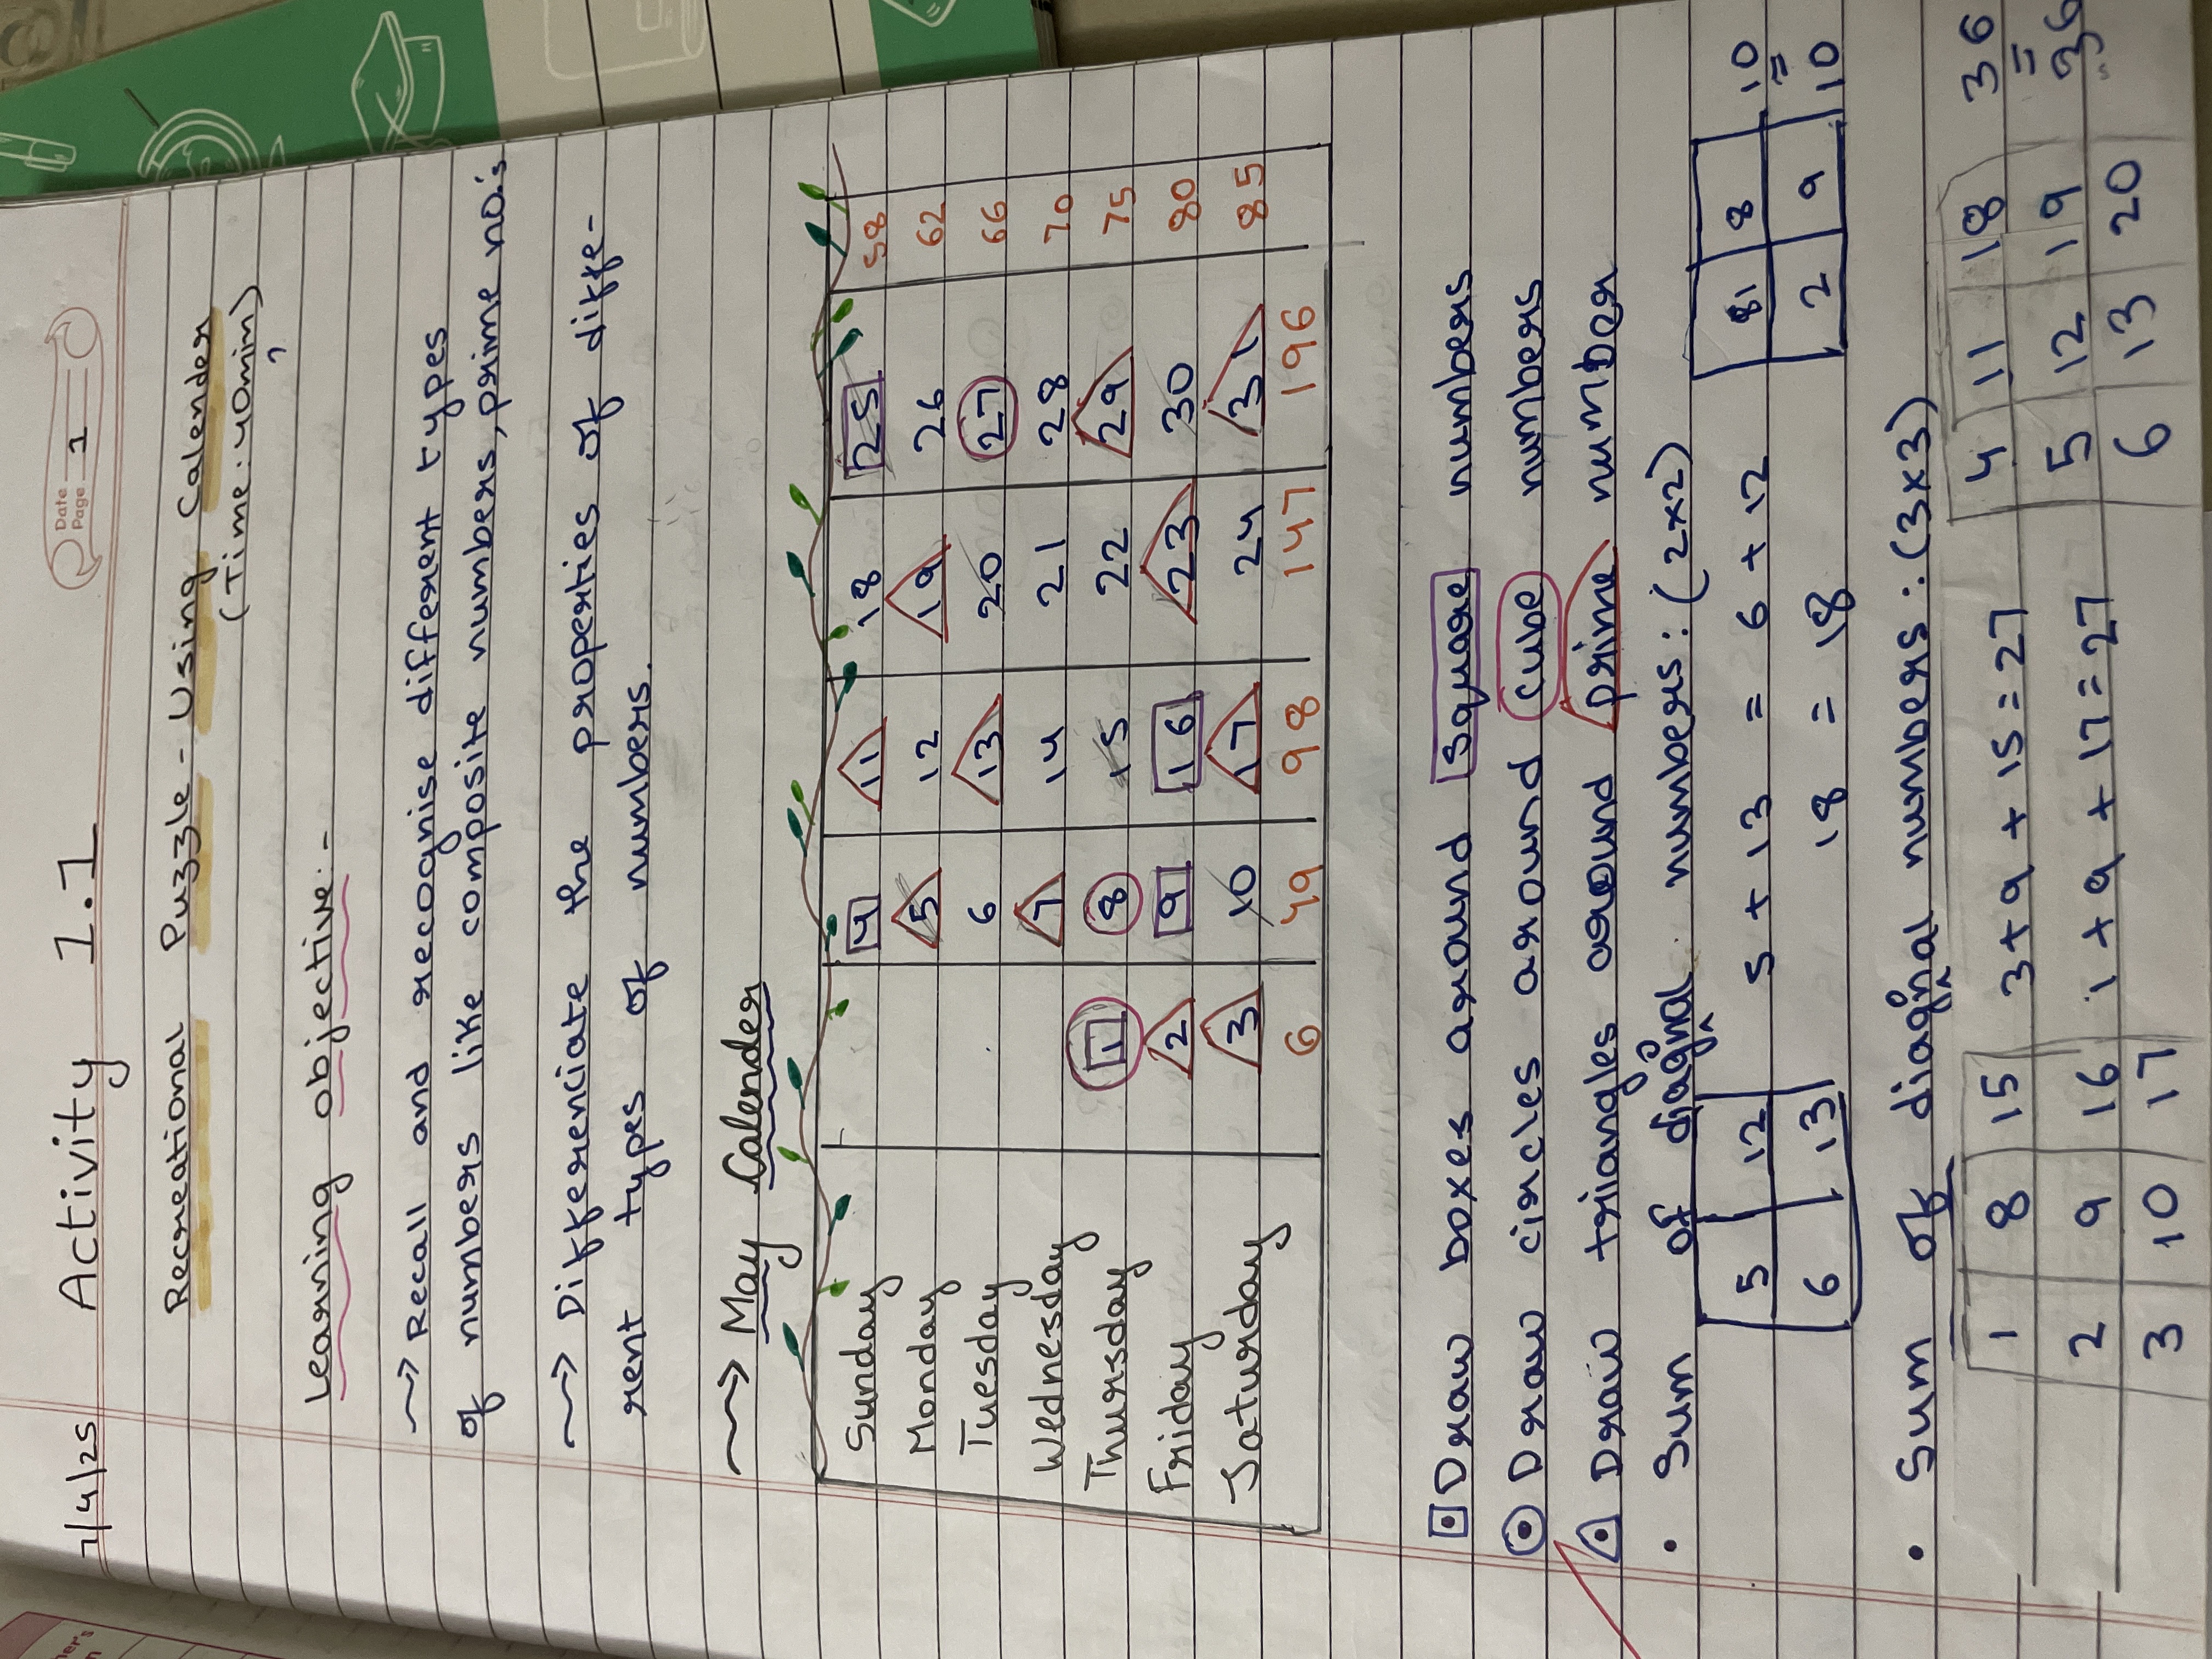 Date
Page 1
7/4/25 Activity 1.1
Recreational Puzzle - Using Calender
(Time: 40min)
Learning objective:-
→ Recall and recognise different types
of numbers like composite numbers, prime no.'s
→ Differenciate the properties of diffe-
rent types of numbers.
→ May Calender
Sunday 4 11 18 25 58
Monday 5 12 19 26 62
Tuesday 6 13 20 27 66
Wednesday 7 14 21 28 70
Thursday 1 8 15 22 29 75
Friday 2 9 16 23 30 80
Saturday 3 10 17 24 31 85
6 49 98 147 196
Draw boxes around square numbers
Draw circles around cube numbers
Draw triangles around prime number
• Sum of diagonal numbers: (2x2)
5 12 5 + 13 = 6 + 12 81 8 10
=
6 13 18 = 18 2 9 10
• Sum of diagnal numbers: (3x3)
1 8 15 3+9+15=27 4 11 18 36
=
2 9 16 1+9+17=27 5 12 19 36
3 10 17 6 13 20